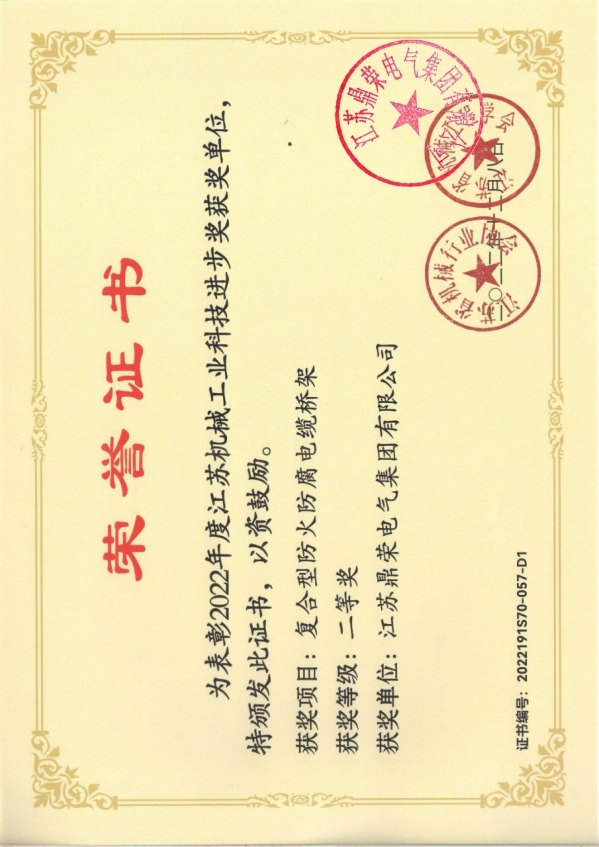 荣誉证书
为表彰2022年度江苏机械工业科技进步奖获奖单位，
特颁发此证书，以资鼓励。
获奖项目：复合型防火防腐电缆桥架
获奖等级：二等奖
获奖单位：江苏鼎荣电气集团有限公司
江苏省机械行业协会
江苏省机械工程学会
江苏鼎荣电气集团有限公司
二〇二二年十二月八日
证书编号：2022191S70-057-D1